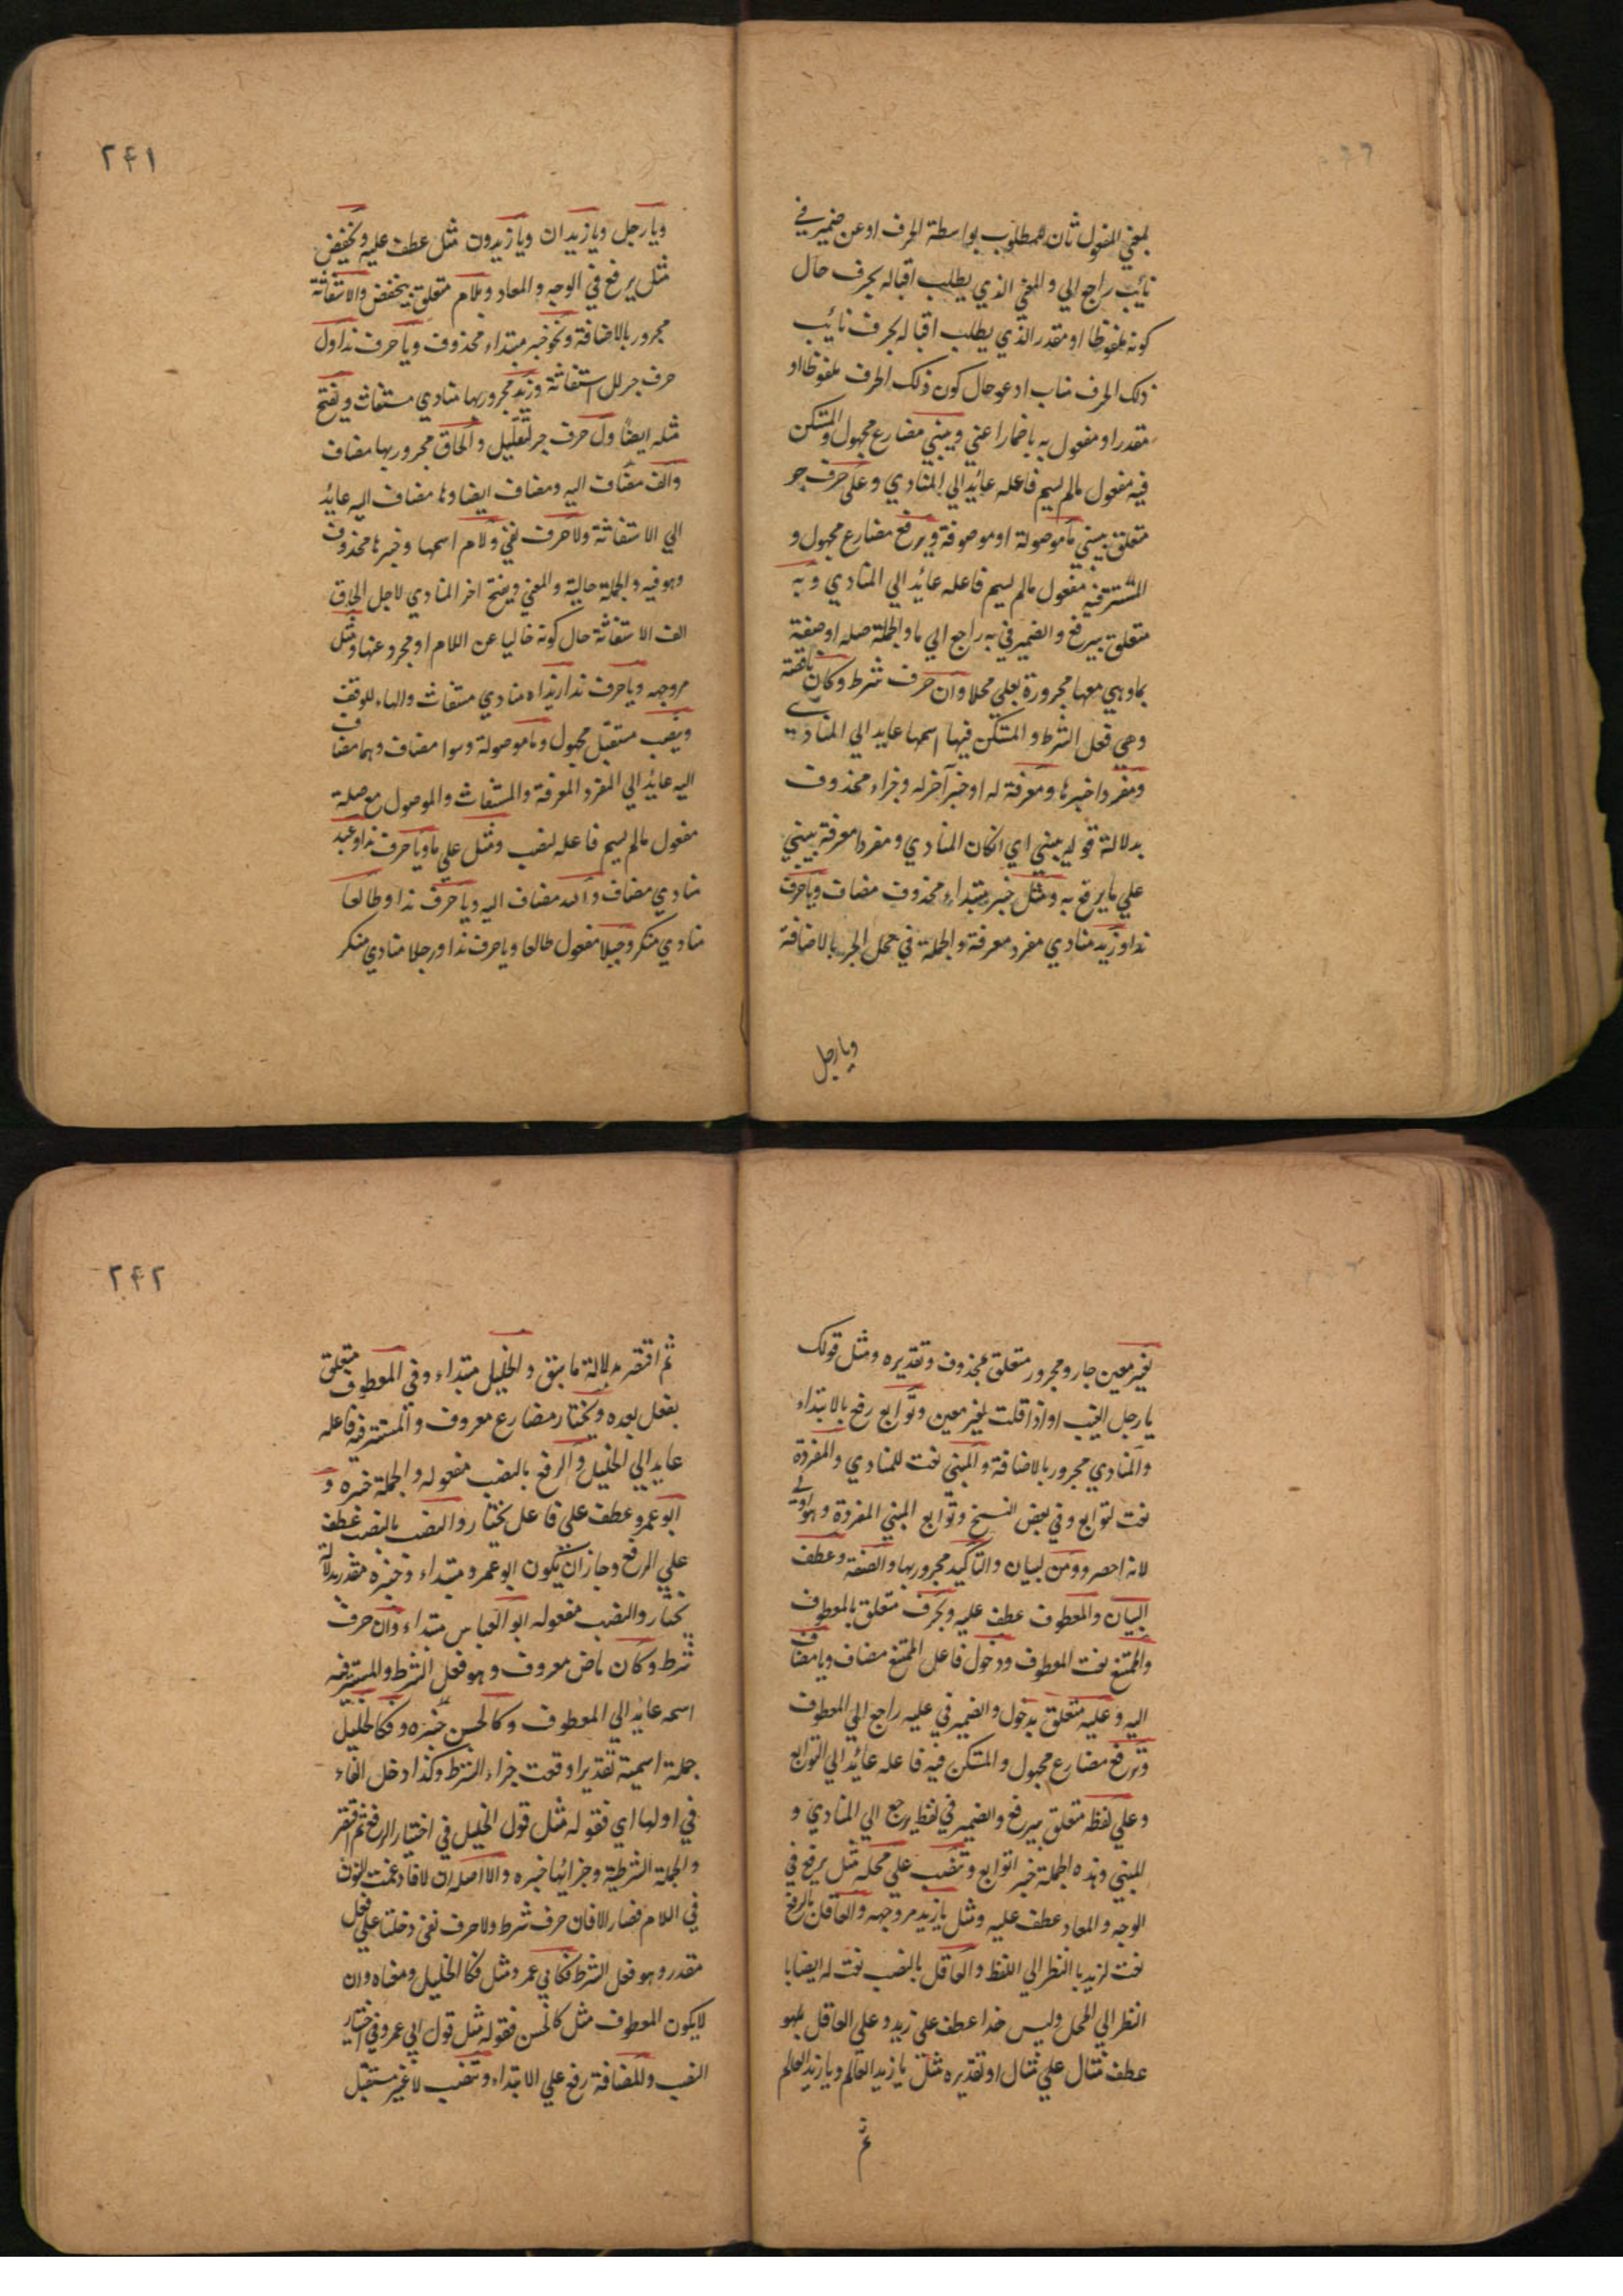 لمعني المفعول ثان للمطلوب بواسطة الحرف او عن ضمير في
نائب راجع الي والمعني الذي يطلب اقباله بحرف حال
كونه ملفوظا او مقدر الذي يطلب اقباله بحرف نائب
ذلك الحرف مناب ادعو حال كون ذلك الحرف ملفوظا او
مقدرا ومفعول به باضمار اعني ويبني مضارع مجهول والمتكن
فيه مفعول مالم يسم فاعله عائد الي المنادي وعلي حرف جر
متعلق بيبني ما موصولة او موصوفة ويرفع مضارع مجهول و
المستتر فيه مفعول مالم يسم فاعله عائد الي المنادي وبه
متعلق بيرفع والضمير في به راجع الي ما والجملة صلة او صفة
بما وهي معها مجرورة بعلي محلا وان حرف شرط وكان ناقصة
وهي فعل الشرط والمتكن فيها اسمها عايد الي المنادي
ومفردا خبرها ومعرفة له او خبر آخر له وجزاء محذوف
بدلالة قوله يبني اي ان كان المنادي ومفردا معرفة يبني
علي ما يرفع به ومثل خبر مبتداء محذوف مضاف ويا حرف
ندا وزيد منادي مفرد معرفة والجملة في محل الجر بالاضافة
ويا رجل
٢٤١
ويا رجل ويا زيدان ويا زيدون مثل عطف عليه ويخفض
مثل يرفع في الوجه والمعاد وبلام متعلق بيخفض والاستغاثة
مجرور بالاضافة ونحو خبر مبتداء محذوف ويا حرف ندا ول
حرف جر لل استغاثة وزيد مجرور بها منادي مستغاث ويفتح
مثله ايضا ول حرف جر لتعليل والحاق مجرور بها مضاف
والف مضاف اليه ومضاف ايضا وها مضاف اليه عائد
الي الاستغاثة ولا حرف نفي ولام اسمها وخبرها محذوف
وهو فيه والجملة حالية والمعني ويفتح اخر المنادي لاجل الحاق
الف الاستغاثة حال كونه خاليا عن اللام او مجرد عنها ومثل
مر وجهه ويا حرف ندا زيداه منادي مستغاث والهاء للوقف
وينصب مستقبل مجهول وما موصولة وسوا مضاف وهما مضاف
اليه عائد الي المفرد المعرفة والمستغاث والموصول مع صلة
مفعول مالم يسم فاعله لنصب ومثل علي ما ويا حرف ندا وعبد
منادي مضاف والله مضاف اليه ويا حرف ندا وطالعا
منادي منكر وجبلا مفعول طالعا ويا حرف ندا ورجلا منادي منكر
لغير معين جار ومجرور متعلق بمحذوف وتقديره ومثل قولك
يا رجل النصب او اذا قلت لغير معين وتوابع رفع بالابتداء
والمنادي مجرور بالاضافة والمبني نعت للمنادي والمفردة
نعت لتوابع وفي بعض النسخ وتوابع المبني المفردة وهو اولي
لانه احصر ومن لبيان والتاكيد مجرور بها والصفة وعطف
البيان والمعطوف عطف عليه وبحرف متعلق بالمعطوف
والممتنع نعت المعطوف ودخول فاعل الممتنع مضاف ويا مضاف
اليه وعليه متعلق بدخول والضمير في عليه راجع الي المعطوف
وترفع مضارع مجهول والمتكن فيه فاعله عائد الي التوابع
وعلي لفظه متعلق بيرفع والضمير في لفظه يرجع الي المنادي و
المبني وهذه الجملة خبر التوابع وتنصب علي محله مثل يرفع في
الوجه والمعاد عطف عليه ومثل يا زيد مر وجهه والعاقل بالرفع
نعت لزيد با النظر الي اللفظ والعاقل بالنصب نعت له ايضا با
النظر الي المحل وليس هذا عطف علي زيد وعلي العاقل بل هو
عطف مثال علي مثال او تقديره مثل يا زيد العالم ويا زيد العالم
ثم
٢٤٢
ثم اقتصر بدلالة ما سبق والخليل مبتداء وفي المعطوف متعلق
بفعل بعده ويختار مضارع معروف والمستتر فيه فاعله
عايد الي الخليل والرفع بالنصب مفعوله والجملة خبره و
ابو عمرو عطف علي فاعل يختار والنصب بالنصب عطف
علي الرفع وجاز ان يكون ابو عمرو مبتداء وخبره مقدر بدلالة
يختار والنصب مفعوله ابو العباس مبتداء وان حرف
شرط وكان ماض معروف وهو فعل الشرط والمستتر فيه
اسمه عايد الي المعطوف وكالحسن خبره وفكالخليل
جملة اسمية تقديرا وقعت جزاء الشرط وكذا دخل الفاء
في اولها اي فقوله مثل قول الخليل في اختيار الرفع ثم اقتصر
والجملة الشرطية وجزائها خبره والا اصله ان لا فادغمت النون
في اللام فصار الا فان حرف شرط ولا حرف نفي دخلتا علي فعل
مقدر وهو فعل الشرط فكابي عمرو مثل فكا الخليل ومعناه وان
لا يكون المعطوف مثل كالحسن فقوله مثل قول ابي عمرو في اختيار
النصب والمضافة رفع علي الابتداء وتنصب لا غير مستقبل